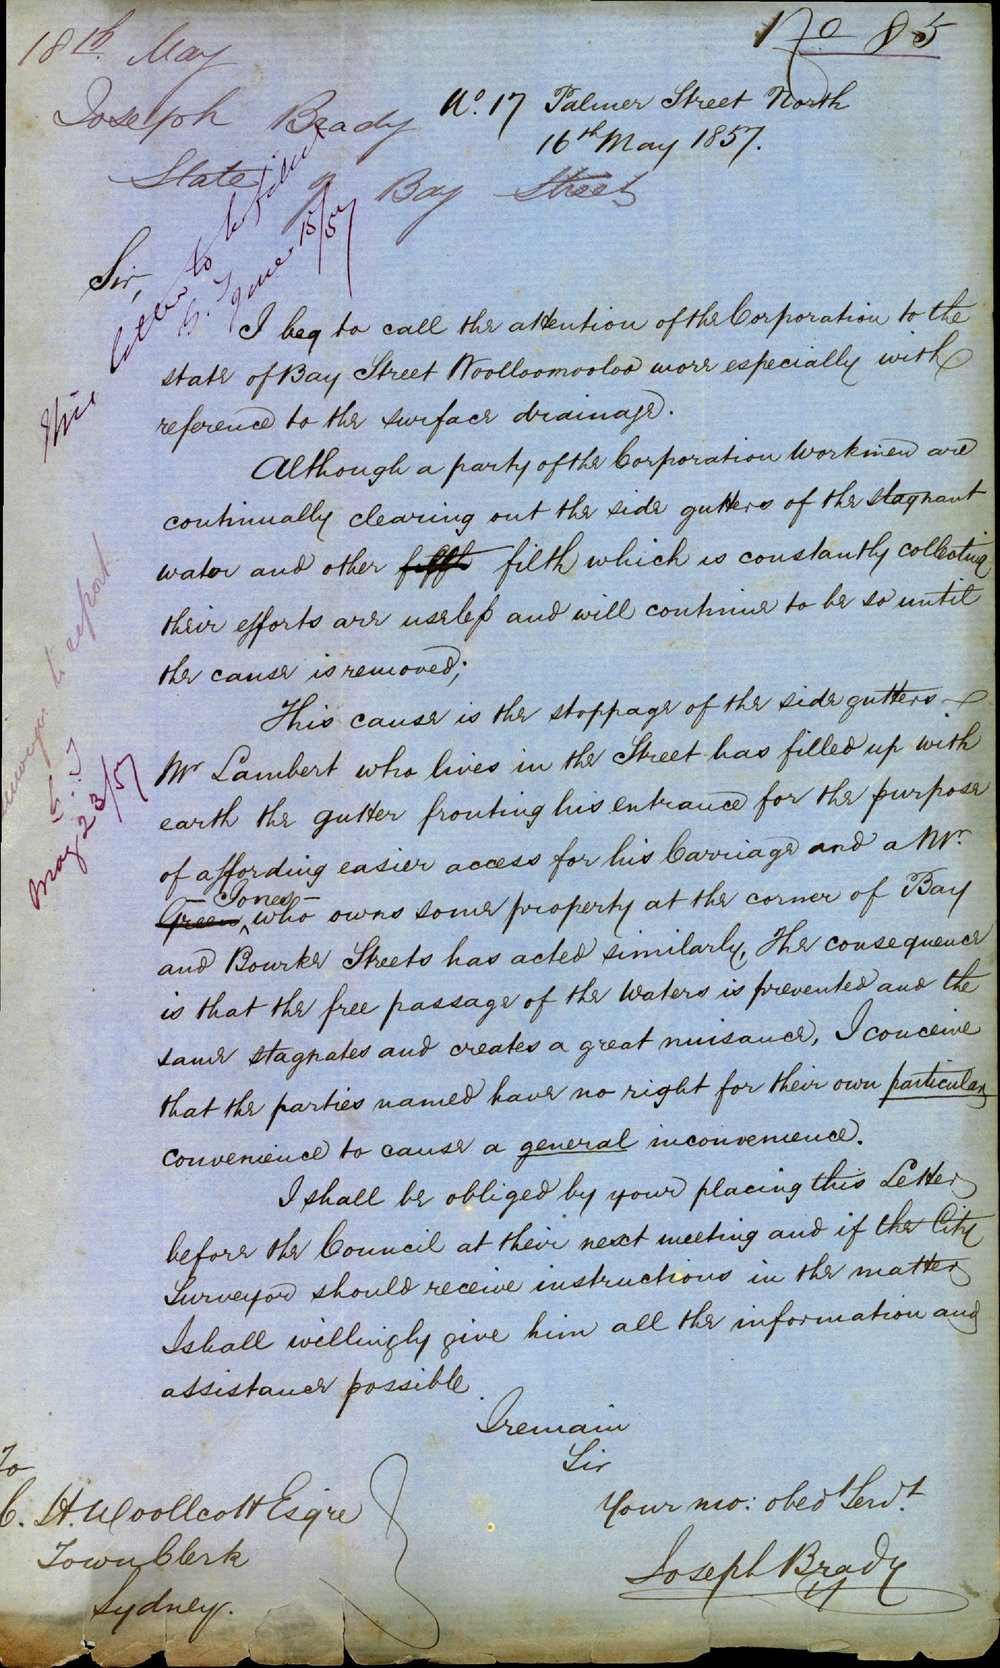 No 85
18th May
Joseph Brady
State of Bay Street
No. 17 Palmer Street North
16th May 1857.
This letter to be filed
June 15/57
Sir,
I beg to call the attention of the Corporation to the
state of Bay Street Woolloomooloo more especially with
reference to the surface drainage.
Although a party of the Corporation Workmen are
continually clearing out the side gutters of the stagnant
water and other filth which is constantly collecting
their efforts are useless and will continue to be so until
the cause is removed;
This cause is the stoppage of the side gutters
Mr Lambert who lives in the Street has filled up with
earth the gutter fronting his entrance for the purpose
of affording easier access for his Carriage and a Mr.
- Jones -
Green who owns some property at the corner of Bay
and Bourke Streets has acted similarly. The consequence
is that the free passage of the Waters is prevented and the
same stagnates and creates a great nuisance, I conceive
that the parties named have no right for their own particular
convenience to cause a general inconvenience.
I shall be obliged by your placing this Letter
before the Council at their next meeting and if the City
Surveyor should receive instructions in the matter
I shall willingly give him all the information and
assistance possible
I remain
Sir
Your mo: obedt Servt.
Joseph Brady
To
C. H. Woollcott Esqre
Town Clerk
Sydney.
to report
May 23/57